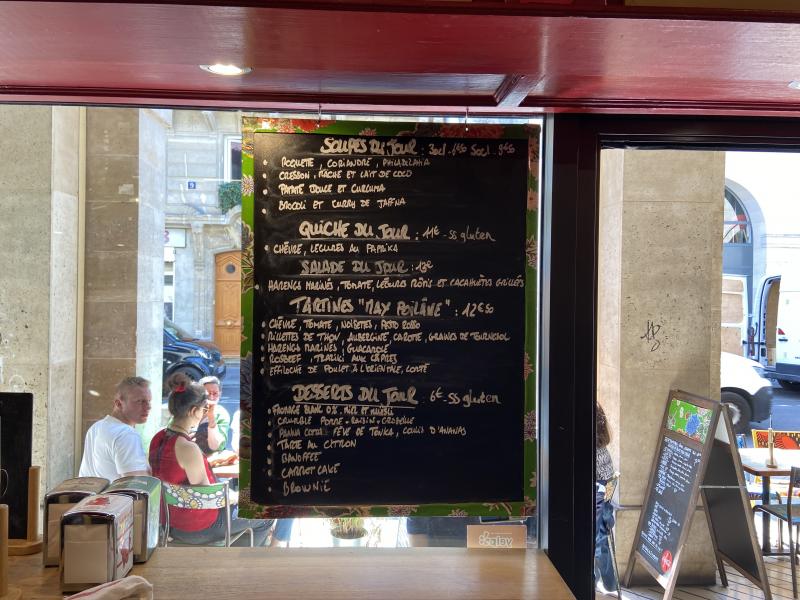 SOUPES DU JOUR : 30cl - 6€50 50cl - 9€50
ROQUETTE, CORIANDRE, PHILADELPHIA
CRESSON, MÂCHE ET LAIT DE COCO
PATATE DOUCE ET CURCUMA
BROCOLI ET CURRY DE JAFFNA
QUICHE DU JOUR : 11€ - ss gluten
CHÈVRE, LÉGUMES AU PAPRIKA
SALADE DU JOUR : 13€
HARENGS MARINÉS, TOMATE, LÉGUMES RÔTIS ET CACAHUÈTES GRILLÉES
TARTINES "MAX POILÂNE" : 12€50
CHÈVRE, TOMATE, NOISETTES, PESTO ROSSO
RILLETTES DE THON, AUBERGINE, CAROTTE, GRAINES DE TOURNESOL
HARENGS MARINÉS, GUACAMOLE
ROSBEEF, TZATZIKI AUX CÂPRES
EFFILOCHÉ DE POULET À L'ORIENTALE, COMTÉ
DESSERTS DU JOUR : 6€ - ss gluten
FROMAGE BLANC 0%, MIEL ET MUESLI
CRUMBLE POMME - RAISIN - GROSEILLE
PANNA COTTA : FÈVE DE TONKA, COULIS D'ANANAS
TARTE AU CITRON
BANOFFEE
CARROT CAKE
BROWNIE
9